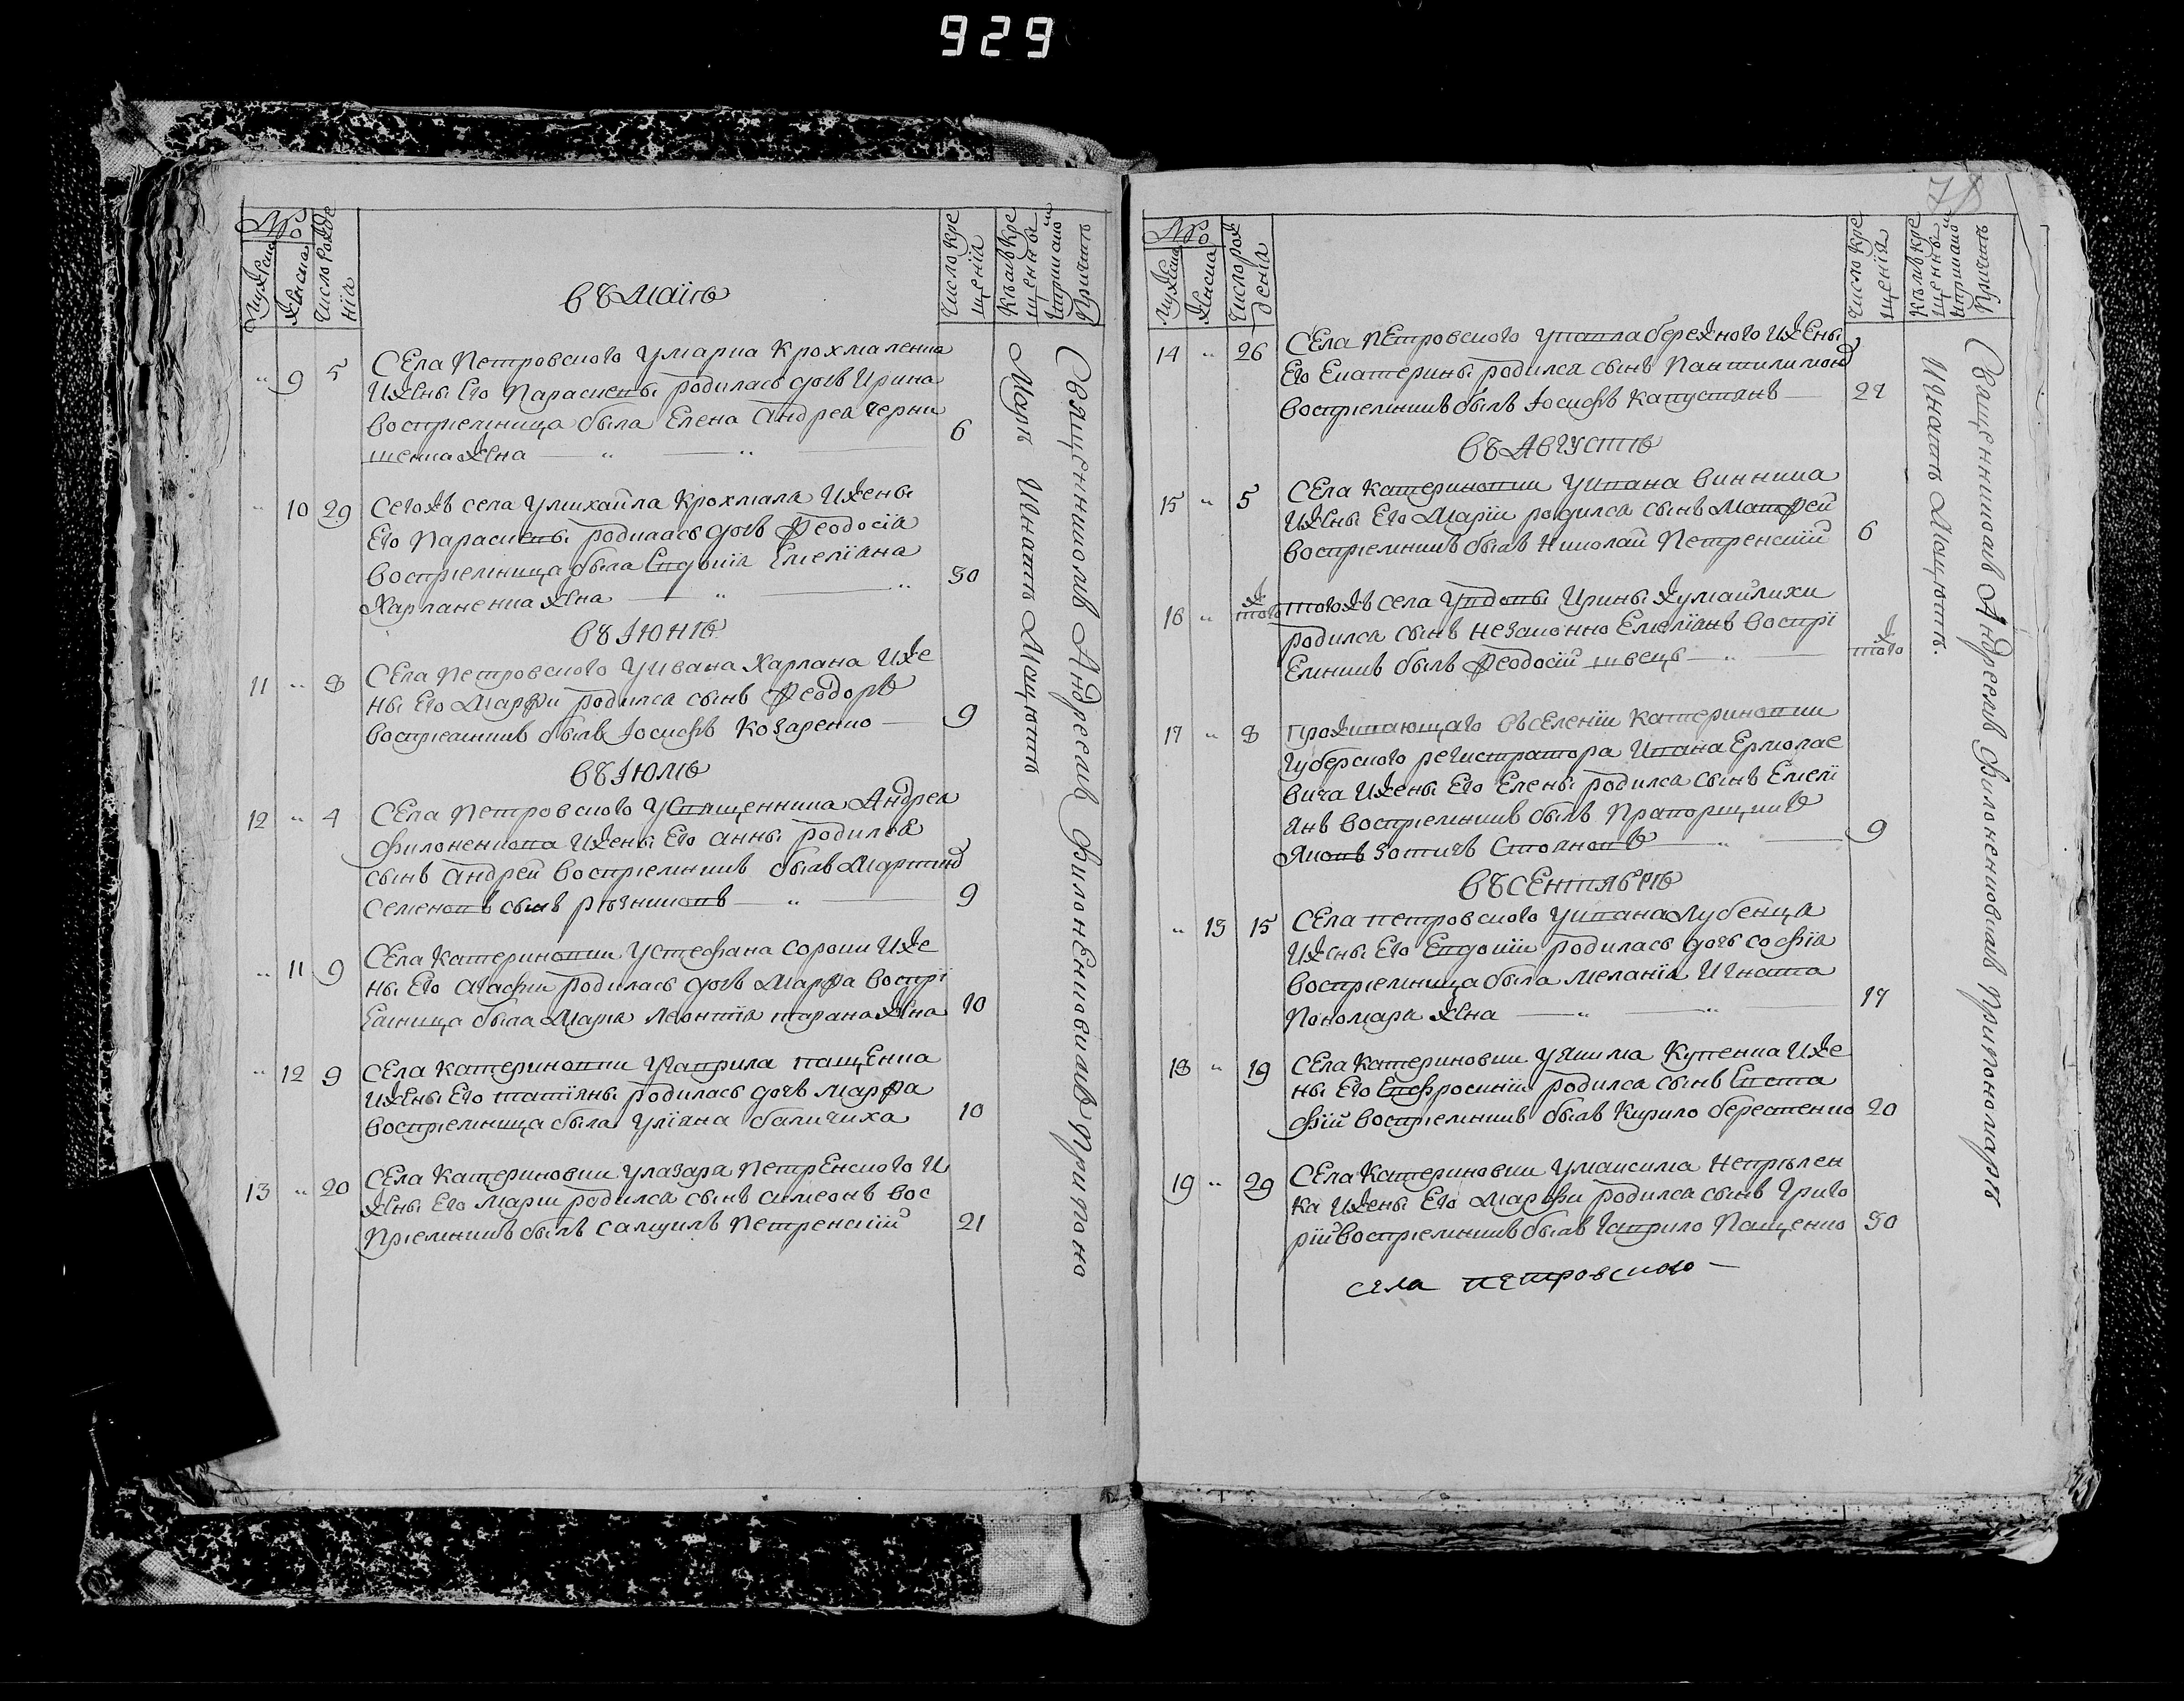 929
78
№
Мужска
Женска
Число рожде
нія
въ Маіѣ
Число кре
щенія
Кѣмъ кре
щены
При томъ
Причтъ
„ 9 5 Села Петровского у Марка Крохмаленка
и жены его Параскевы родилась дочъ Ирина
воспріемница была Елена Андрея Черни
шенка жена 6
„ 10 29 Сегожъ села у Михайла Крохмаля и жены
его Параскевы родилась дочъ Феодосія
воспріемница была Евдокія Емеліяна
Харланенка жена 30
въ Іюнѣ
11 „ 8 Села Петровского у Ивана Харлана и же
ны его Марфи родился сынъ Феодоръ
воспріемникъ былъ Іосифъ Козаренко 9
въ Іюлѣ
12 „ 4 Села Петровского у Священника Андрея
Филоненкова и жены его Анны родился
сынъ Андрей воспріемникъ былъ Мартинъ
Семеновъ сынъ Рѣзниковъ 9
„ 11 9 Села Катериновки у Стефана Сороки и же
ны его Агафіи родилась дочъ Марфа воспрі
емница была Марія Леонтія Тарана жена 10
„ 12 9 Села Катериновки у Гаврила Пащенка
и жены его Татіяны родилась дочъ Марфа
воспріемница была Уліяна Баличиха 10
13 „ 20 Села Катериновки у Лазаря Петренского и
жены его Маріи родился сынъ Симеонъ вос
пріемникъ былъ Самуилъ Петренскій 21
Священникомъ Андреемъ Филоненковимъ при поно
маръ Игнатъ Мацютъ
№
Мужска
Женска
Число рож
денія
Число кре
щенія
Кѣмъ кре
щены
При томъ
Причтъ
14 „ 26 Села Петровского у Павла Бережного и жены
его Екатерины родился сынъ Пантилимонъ
воспріемникъ былъ Іосифъ Капустянъ 27
въ Августѣ
15 „ 5 Села Катериновки у Ивана Винника
и жены его Маріи родился сынъ Матфей
воспріемникъ былъ Николай Петренскій 6
16 „ тогож тогожъ села у вдовы Ирины Хумайлихи
родился сынъ незаконно Емеліянъ воспрі
емникъ былъ Феодосій Швецъ тогож
17 „ 8 Проживающаго въ селеніи Катериновки
Губерского регистратора Ивана Ермолае
вича и жены его Елены родился сынъ Емелі
янъ воспріемникъ былъ Прапорщикъ
Яковъ Зотичъ Стояновъ 9
въ Сентябрѣ
„ 13 15 Села Петровского у Ивана Лубенца
и жены его Евдокіи родилась дочъ Софія
воспріемница была Меланія Игната
Пономаря жена 17
18 „ 19 Села Катериновки у Якима Купенка и же
ны его Евфросиніи родился сынъ Евста
фій воспріемникъ былъ Кирило Берестенко 20
19 „ 29 Села Катериновки у Максима Непрѣлен
ка и жены его Марфи родился сынъ Григо
рій воспріемникъ былъ Гаврило Пащенко 30
села Петровского
Священникомъ Андреемъ Филоненковимъ при пономарѣ
Игнатъ Мацютъ.